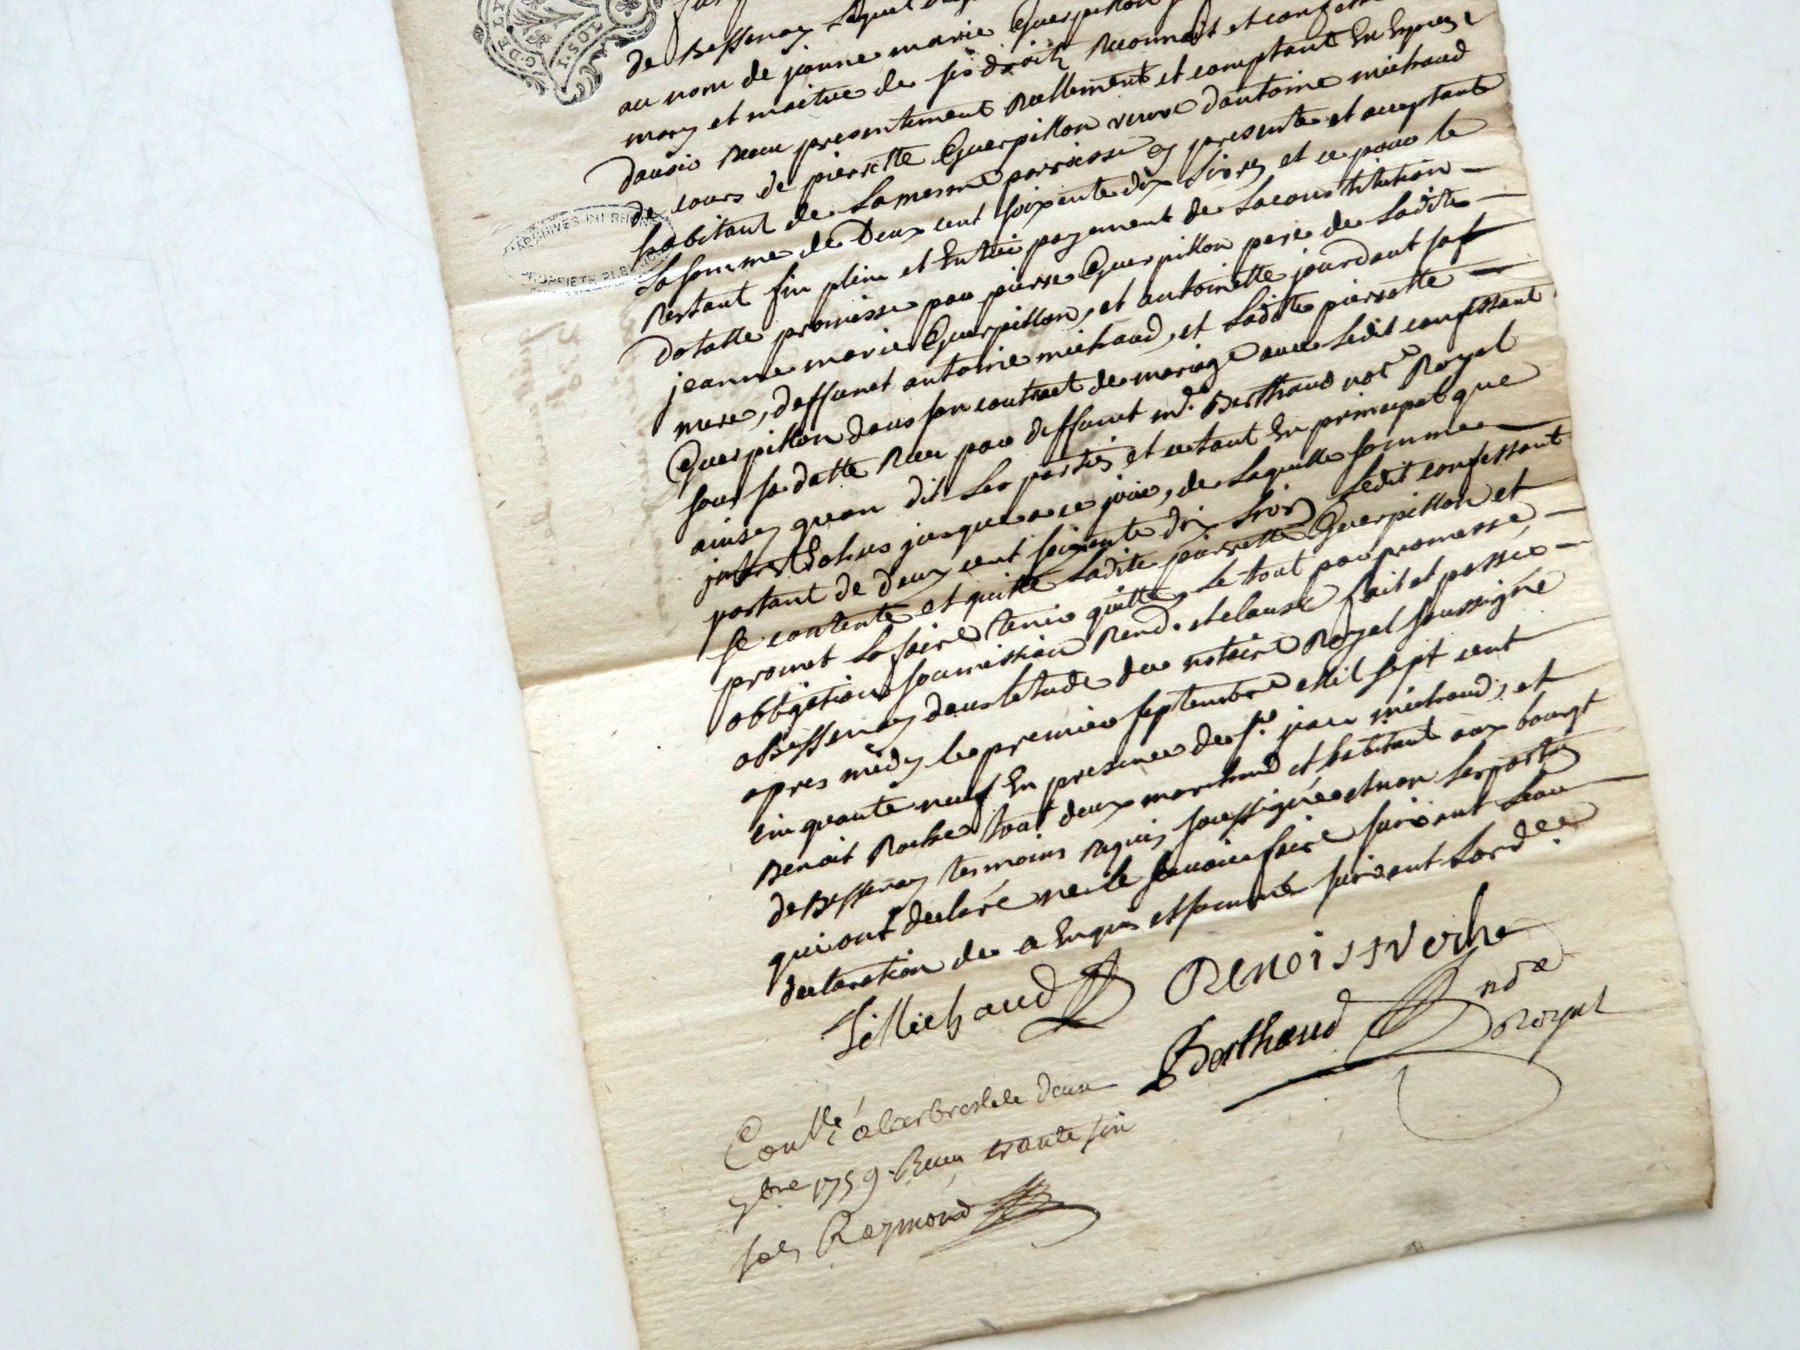 DE LY
1.SOL
ARCHIVES DU RHÔNE
PROPRIETE PUBLIQUE
de Bessenay lequel
au nom de jeanne marie Guerpillon
mary et maitre de ses droits Reconnoit et confesse
davoir Receu presentement Reellement et comptant En Especes
de cours de pierrette Guerpillon veuve dantoine michaud
habitant de La mesme parroisse cy presente et acceptante
La somme de Deux cent soixente dix Livres et ce pour le
Restant fin plein et Entier payement de La constitution
dotalle promisse par pierre Guerpillon pere de Ladite
jeanne marie Guerpillon, et antoinette jourdant sa
mere, deffunct antoine michaud, et Ladite pierrette
Guerpillon dans son contract de mariage avec Ledit confessant
sous sa datte Receu par deffunt md. Berthaud not.e Royal
ainsy quon dit Les parties et ce tant En principal que
jusques a ce jour, de Laquelle somme
portant de deux cent soixente dix Livres Ledit confessant
se contente et quitte Ladite pierrette Guerpillon et
promet La faire tenir quitte, Le tout par promesse,
obligation soumission Rend. et clause fait et passé
a Bessenay dans letude du notaire Royal soussigné
apres midy le premier septembre mil sept cent
cinquante neuf En presence de s.r jean michaud, et
Benoit Roche tout deux marchand et habitant aux bourgt
de Bessenay temoins requis soussignés et non Les parties
qui ont declaré ne le sçavoir faire suivant Leur
declaration de ce Enquis et sommé suivant Lord.ce
J Michaud BENOIST Roche
Berthaud nd.e
Royal
Con.llé a larbresle le deux
7bre 1759. Receu trante six
sols Raymond